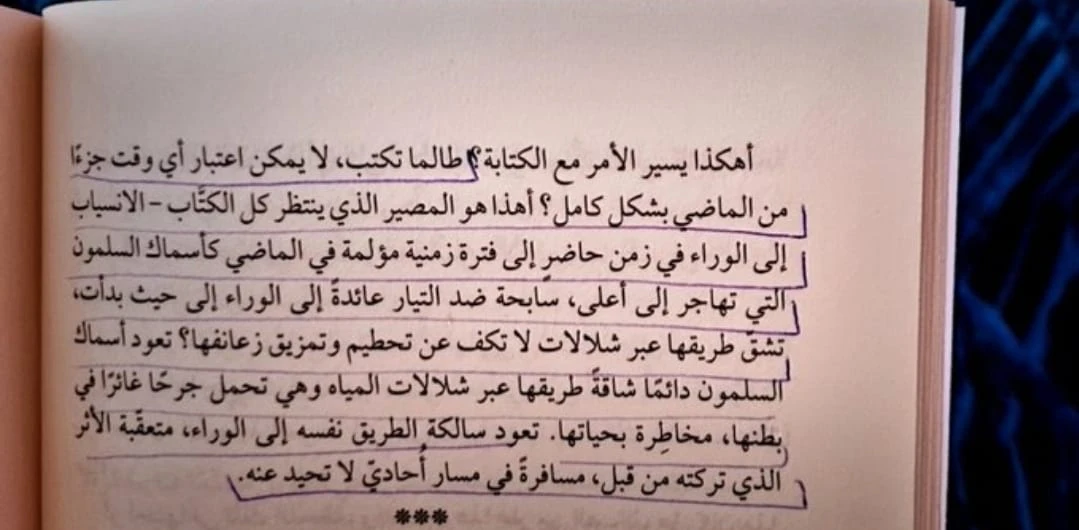 أهكذا يسير الأمر مع الكتابة؟ طالما تكتب، لا يمكن اعتبار أي وقت جزءًا
من الماضي بشكل كامل؟ أهذا هو المصير الذي ينتظر كل الكتَّاب – الانسياب
إلى الوراء في زمن حاضرٍ إلى فترة زمنية مؤلمة في الماضي كأسماك السلمون
التي تهاجر إلى أعلى، سابحة ضد التيار عائدةً إلى الوراء إلى حيث بدأت،
تشقّ طريقها عبر شلالات لا تكف عن تحطيم وتمزيق زعانفها؟ تعود أسماك
السلمون دائمًا شاقةً طريقها عبر شلالات المياه وهي تحمل جرحًا غائرًا في
بطنها، مخاطِرة بحياتها. تعود سالكة الطريق نفسه إلى الوراء، متعقّبة الأثر
الذي تركته من قبل، مسافرةً في مسار أُحاديّ لا تحيد عنه.
***